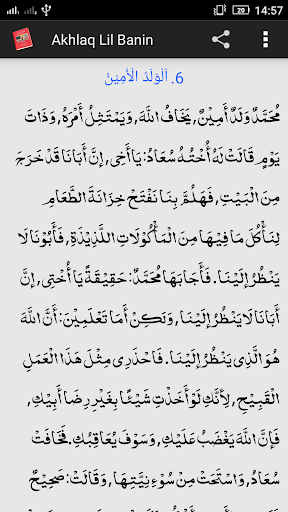 14:57
Akhlaq Lil Banin
6. اَلْوَلَدُ الْأَمِيْنُ
مُحَمَّدٌ وَلَدٌ أَمِيْنٌ, يَخَافُ اللَّهَ, وَيَمْتَثِلُ أَمْرَهُ, وَذَاتَ
يَوْمٍ قَالَتْ لَهُ أُخْتُهُ سُعَادُ: يَا أَخِى, إِنَّ أَبَانَا قَدْ خَرَجَ
مِنَ الْبَيْتِ, فَهَلُمَّ بِنَا نَفْتَحْ خِزَانَةَ الطَّعَامِ
لِنَأْكُلَ مَا فِيْهَا مِنَ الْمَأْكُوْلَاتِ اللَّذِيْذَةِ, فَأَبُوْنَا لَا
يَنْظُرُ إِلَيْنَا. فَأَجَابَهَا مُحَمَّدٌ: حَقِيْقَةً يَا أُخْتِى, إِنَّ
أَبَانَا لَا يَنْظُرُ إِلَيْنَا, وَلَكِنْ أَمَا تَعْلَمِيْنَ: أَنَّ اللَّهَ
هُوَ الَّذِى يَنْظُرُ إِلَيْنَا. فَاحْذَرِى مِثْلَ هَذَا الْعَمَلِ
الْقَبِيْحِ, لِأَنَّكِ لَوْ أَخَذْتِ شَيْئًا بِغَيْرِ رِضَا أَبِيْكِ,
فَإِنَّ اللَّهَ يَغْضَبُ عَلَيْكِ, وَسَوْفَ يُعَاقِبُكِ. فَخَافَتْ
سُعَادُ, وَاسْتَحَتْ مِنْ سُوْءِ نِيَّتِهَا, وَقَالَتْ: صَحِيْحٌ